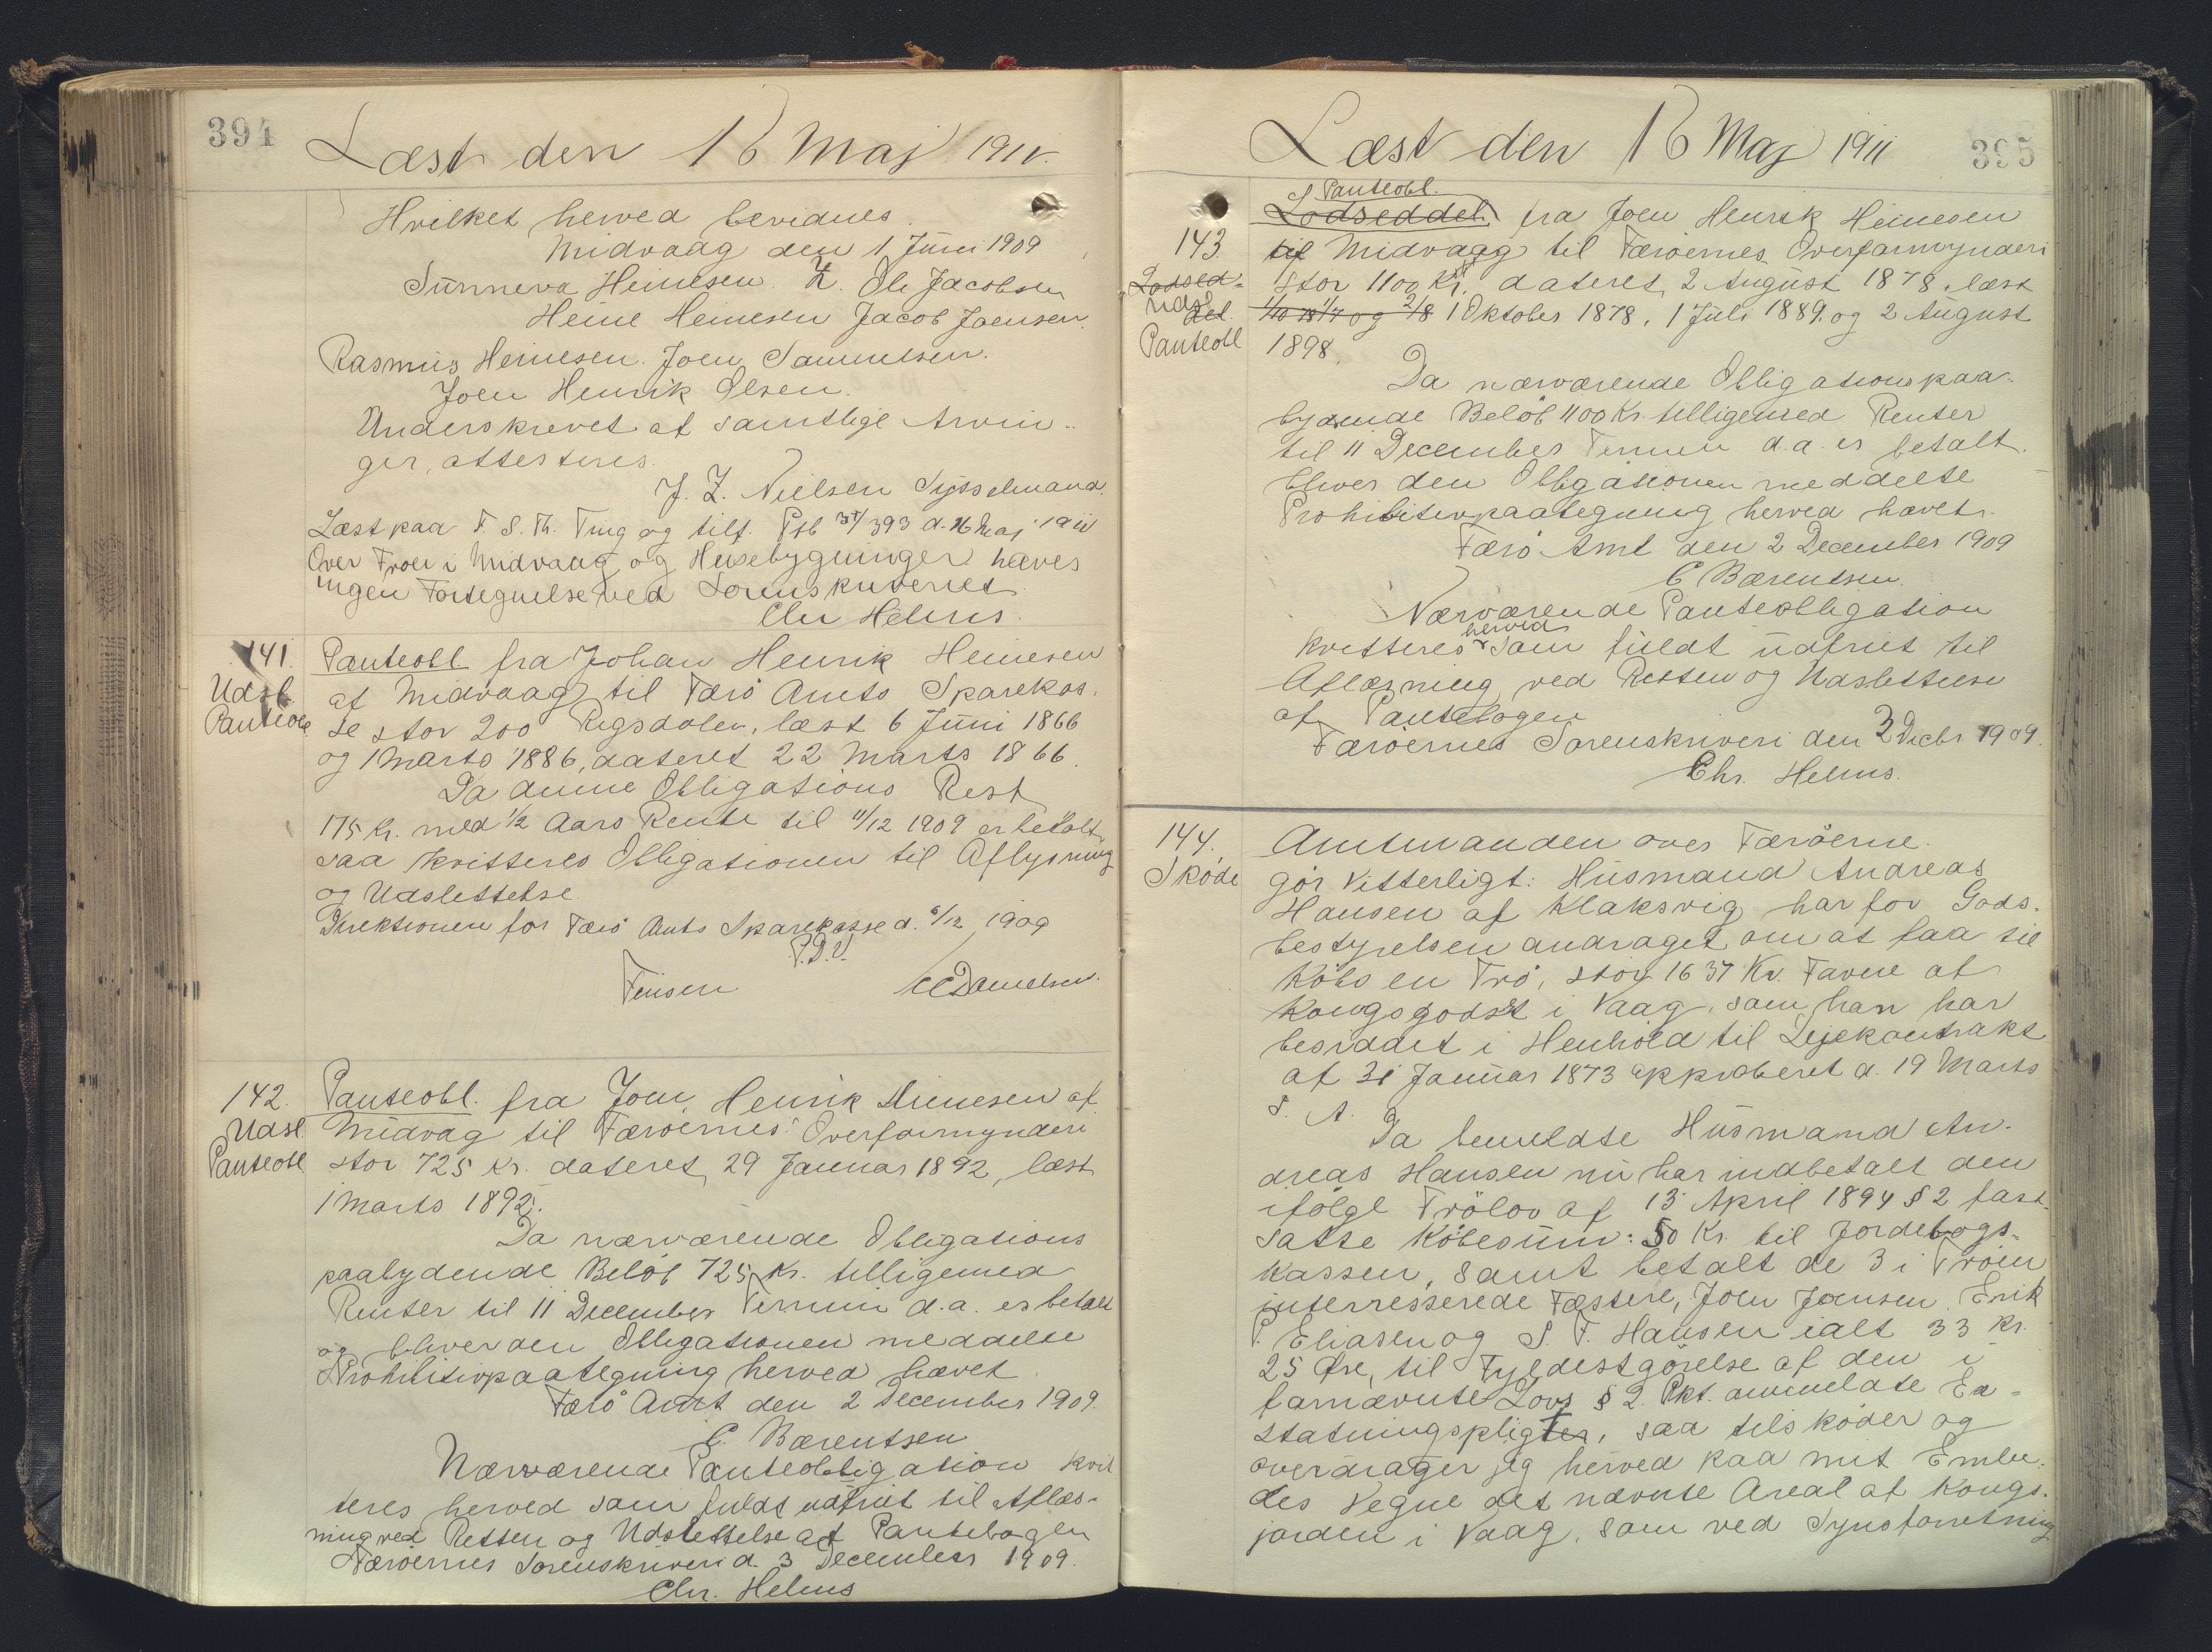 394
Læst den 16 Maj 1911.
Hvilket herved bevidnes.
Midvaag den 1 Juni 1909
Sunneva Heinesen. Z. Ole Jacobsen
Heine Heinesen Jacob Joensen.
Rasmus Heinesen. Joen Samuelsen.
Joen Henrik Olsen.
Underskrevet af samtlige Arvin-
ger, attesteres.
J. Z. Nielsen Sysselmand.
Læst paa F. S. Th. Ting og tilf. Ptb /393 d. 16 Maj 1911
Over Troer i Midvaag og Husebygninger haves
ingen Fortegnelse ved Sorenskriveriet
Chr Helms.
141.
Udsl
Panteobl
Panteobl fra Johan Henrik Heinesen
af Midvaag til Færø Amts Sparekas-
se stor 200 Rigsdaler, læst 6 Juni 1866
og 1 Marts 1886, dateret 22 Marts 1866.
Da denne Obligations Rest
175 Kr. med 1/2 Aars Rente til 11/12 1909 er betalt
saa kvitteres Obligationen til Aflysning
og Udslettelse
Direktionen for Færø Amts Sparekasse d. 6/12 1909
P.D.V.
Finsen CC Danielsen.
142.
Udsl
Panteobl
Panteobl. fra Joen Henrik Heinesen af
Midvag til Færøernes Overformynderi
stor 725 Kr. dateret 29 Januar 1892, læst
1 Marts 1892.
Da nærværende Obligations
paalydende Beløb 725 Kr. tilligemed
Renter til 11 December Termin d.a. er betalt
og bliver den Obligationen meddelte
Prohibitivpaategning herved hævet
Færø Amt den 2 December 1909.
C. Bærentsen
Nærværende Panteobligation kvit
teres herved som fuldt udfriet til Aflæs-
ning ved Retten og Udslettelse af Pantebogen
Færøernes Sorenskriveri d. 3 December 1909.
Chr. Helms
Læst den 16 Maj 1911
395
Panteobl.
143.
Lodsed-
Udsl
del.
Panteobl
Lodseddel fra Joen Henrik Heinesen
af Midvaag til Færøernes Overformynderi
stor 1100 Kr. dateret 2 August 1878, læst
1/10 78 1/7 og 2/8 1 Oktober 1878, 1 Juli 1889. og 2 August
1898.
Da nærværende Obligations paa-
lydende Beløb 1100 Kr tilligemed Renter
til 11 December Termin d.a. er betalt.
bliver den Obligationen meddelte
Prohibitivpaategning herved hævet.
Færø Amt den 2 December 1909
C Bærentsen.
Nærværende Panteobligation
herved
kvitteres som fuldt udfriet til
Aflæsning ved Retten og Udslettelse
af Pantebogen
Færøernes Sorenskriveri den 3 Decbr 1909.
Chr. Helms.
144.
Skøde
Amtmanden over Færøerne
gør Vitterligt: Husmand Andreas
Hansen af Klaksvig har for Gods-
bestyrelsen andraget om at faa til
Købs en Trø, stor 1637 Kv. Favne af
Kongsgodset i Vaag, som han har
besiddet i Henhold til Lejekontrakt
af 31 Januar 1873 approberet d. 19 Marts
s. A.
Da bemeldte Husmand An-
dreas Hansen nu har indbetalt den
ifølge Trølov af 13 April 1894 § 2 fast-
satte Købesum: 50 Kr. til Jordebogs-
kassen, samt betalt de 3 i Trøen
interresserede Fæstere, Joen Joensen, Erik
P. Eliasen og S. F. Hansen ialt 33 Kr.
25 Øre, til Fyldestgørelse af den i
fornævnte Lovs § 2. Pkt. ommeldte Er-
statningspligter, saa tilskøder og
overdrager jeg herved paa mit Embe-
des Vegne det nævnte Areal af Kongs-
jorden i Vaag, som ved Synsforretning